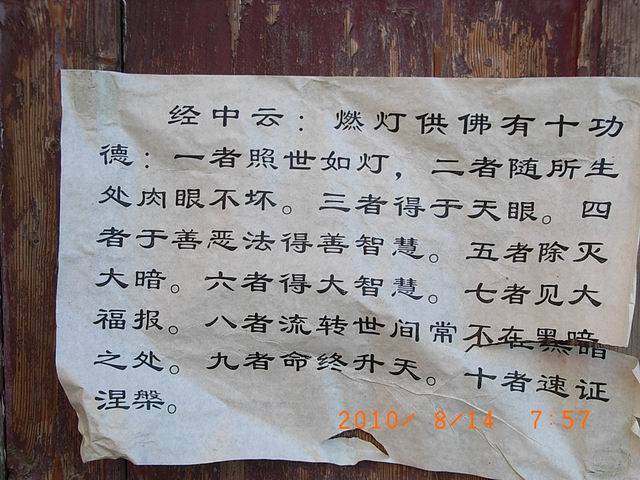 经中云：燃灯供佛有十功
德：一者照世如灯，二者随所生
处肉眼不坏。三者得于天眼。四
者于善恶法得善智慧。五者除灭
大暗。六者得大智慧。七者见大
福报。八者流转世间常不在黑暗
之处。九者命终升天。十者速证
涅槃。
2010/ 8/14 7:57